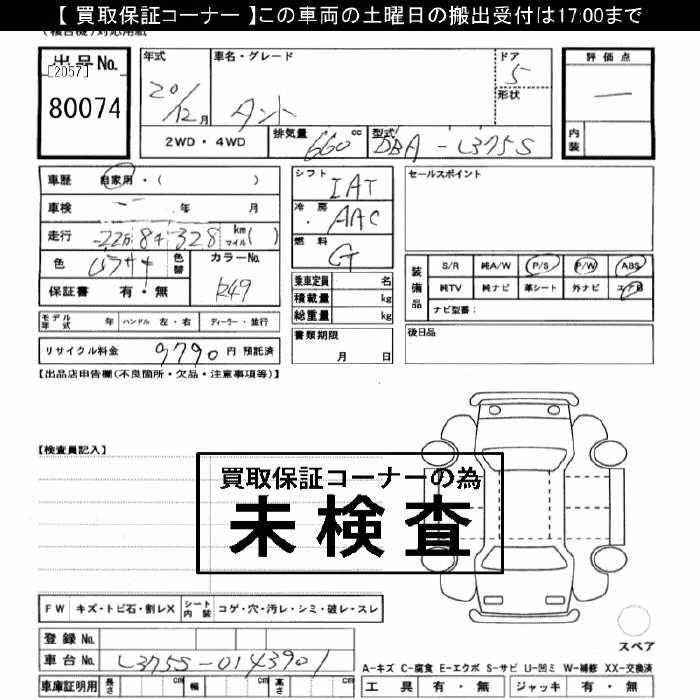 【 買取保証コーナー 】この車両の土曜日の搬出受付は17:00まで
出品No.
[2057]
80074
年式
20/12月
車名・グレード
タント
ドア
5
形状
評価点
―
内装
2WD・4WD
排気量
660 cc
型式
DBA-L375S
車歴 自家用・( )
車検 年 月
走行 228千328 km マイル( )
色
色替
カラーNo.
R49
保証書 有・無
モデル年式 年 ハンドル 左・右 ディーラー・並行
リサイクル料金 9790 円 預託済
シフト
IAT
冷房
AAC
燃料
G
乗車定員 名
積載量 kg
総重量 kg
書類期限
月 日
セールスポイント
装備品
S/R 純A/W P/S P/W ABS
純TV 純ナビ 革シート 外ナビ エアB
ナビ型番:
後日品
【出品店申告欄(不良箇所・欠品・注意事項等)】
【検査員記入】
買取保証コーナーの為
未検査
FW キズ・トビ石・割レX シート内装 コゲ・穴・汚レ・シミ・破レ・スレ
登録 No.
車台 No. L375S-0143901
車庫証明用 長さ cm 幅 cm 高さ cm
スペア
A-キズ C-腐食 E-エクボ S-サビ U-凹ミ W-補修 XX-交換済
工具 有・無 ジャッキ 有・無